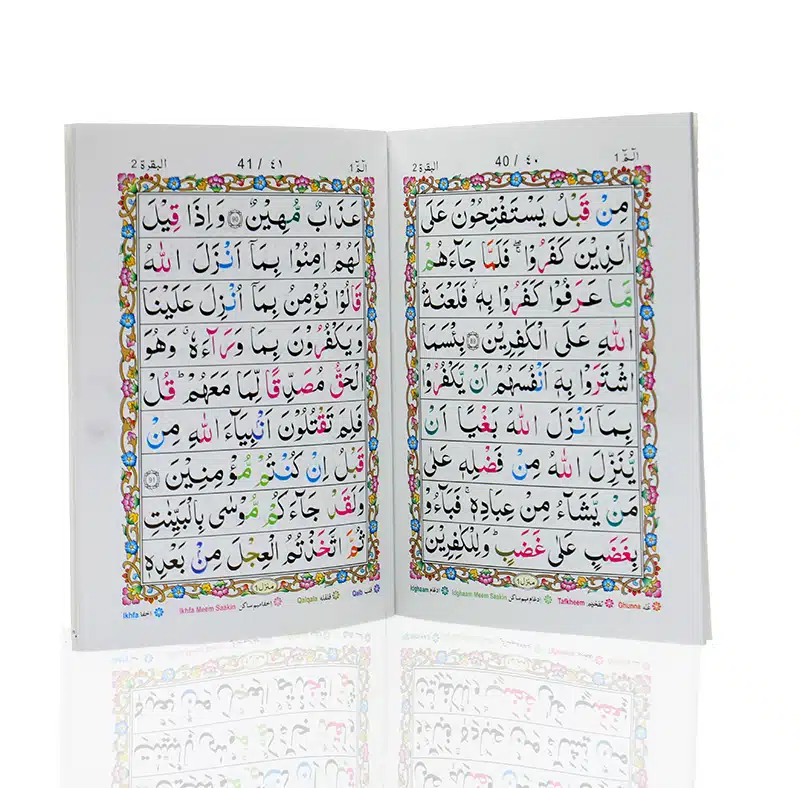 الٓمّٓ 1
40 / ٤٠
البقرة 2
مِنْ قَبْلُ يَسْتَفْتِحُوْنَ عَلَى
الَّذِيْنَ كَفَرُوْا ۖ فَلَمَّا جَآءَهُمْ
مَّا عَرَفُوْا كَفَرُوْا بِهٖ ؗ فَلَعْنَةُ
اللّٰهِ عَلَى الْكٰفِرِيْنَ 89 بِئْسَمَا
اشْتَرَوْا بِهٖۤ اَنْفُسَهُمْ اَنْ يَّكْفُرُوْا
بِمَاۤ اَنْزَلَ اللّٰهُ بَغْيًا اَنْ
يُّنَزِّلَ اللّٰهُ مِنْ فَضْلِهٖ عَلٰى
مَنْ يَّشَآءُ مِنْ عِبَادِهٖ ۚ فَبَآءُوْ
بِغَضَبٍ عَلٰى غَضَبٍ ؕ وَلِلْكٰفِرِيْنَ
منزل ١
Idghaam ادغام Idghaam Meem Saakin ادغام میم ساکن Tafkheem تفخیم Ghunna غنہ
الٓمّٓ 1
41 / ٤١
البقرة 2
عَذَابٌ مُّهِيْنٌ 90 وَاِذَا قِيْلَ
لَهُمْ اٰمِنُوْا بِمَاۤ اَنْزَلَ اللّٰهُ
قَالُوْا نُؤْمِنُ بِمَاۤ اُنْزِلَ عَلَيْنَا
وَيَكْفُرُوْنَ بِمَا وَرَآءَهٗ ۗ وَهُوَ
الْحَقُّ مُصَدِّقًا لِّمَا مَعَهُمْ ؕ قُلْ
فَلِمَ تَقْتُلُوْنَ اَنْۢبِيَآءَ اللّٰهِ مِنْ
قَبْلُ اِنْ كُنْتُمْ مُّؤْمِنِيْنَ 91
وَلَقَدْ جَآءَكُمْ مُّوْسٰى بِالْبَيِّنٰتِ
ثُمَّ اتَّخَذْتُمُ الْعِجْلَ مِنْۢ بَعْدِهٖ
منزل ١
Ikhfa اخفا Ikhfa Meem Saakin اخفا میم ساکن Qalqala قلقلہ Qalb قلب